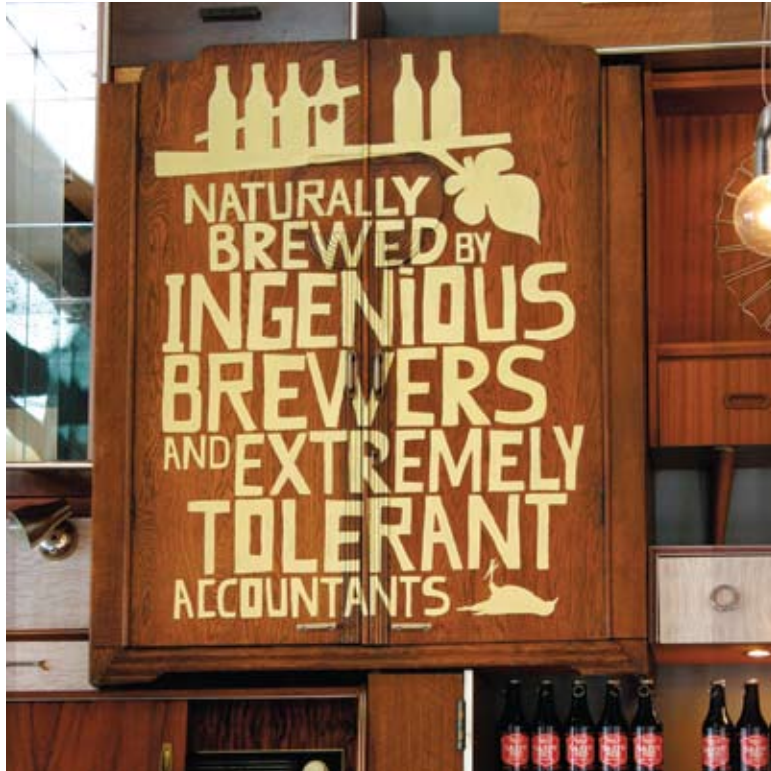 NATURALLY
BREWED BY
INGENiOUS
BREWERS
AND EXTREMELY
TOLERANT
ACCOUNTANTS